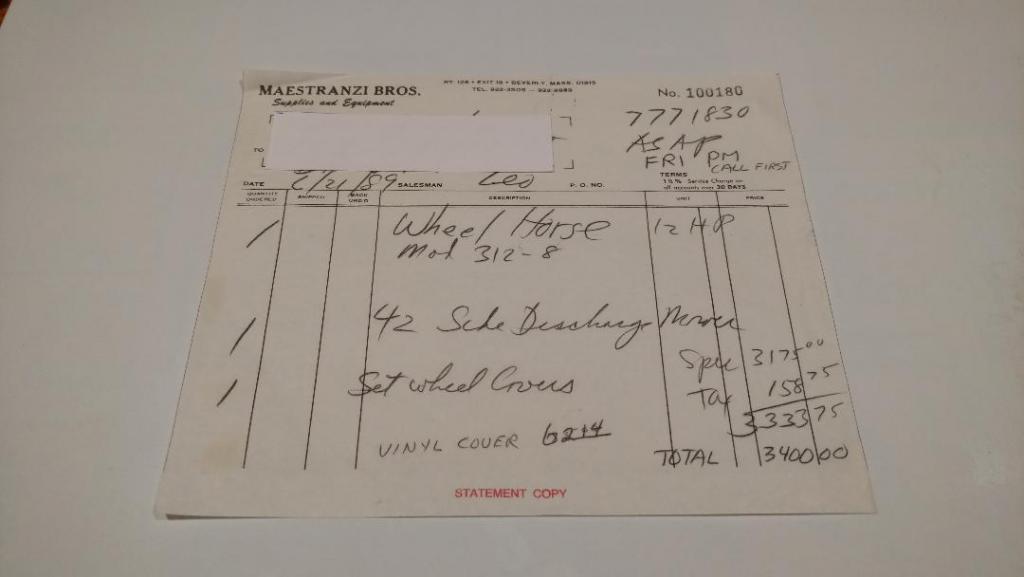 RT. 128 • EXIT 19 • BEVERLY, MASS. 01915
MAESTRANZI BROS.
TEL. 922-3509 — 922-8989
No. 100180
Supplies and Equipment
7771830
ASAP
TO
FRI PM
CALL FIRST
TERMS
1½% Service Charge on
all accounts over 30 DAYS
DATE 6/21/89 SALESMAN Leo P.O. NO.
QUANTITY ORDERED SHIPPED BACK ORD'R DESCRIPTION UNIT PRICE
1 Wheel Horse 12 HP
Mod 312-8
1 42 Side Discharge Mower
Spec 3175 00
1 Set wheel Covers
Tax 158 75
3333 75
VINYL COVER 6214
TOTAL 3400 00
STATEMENT COPY